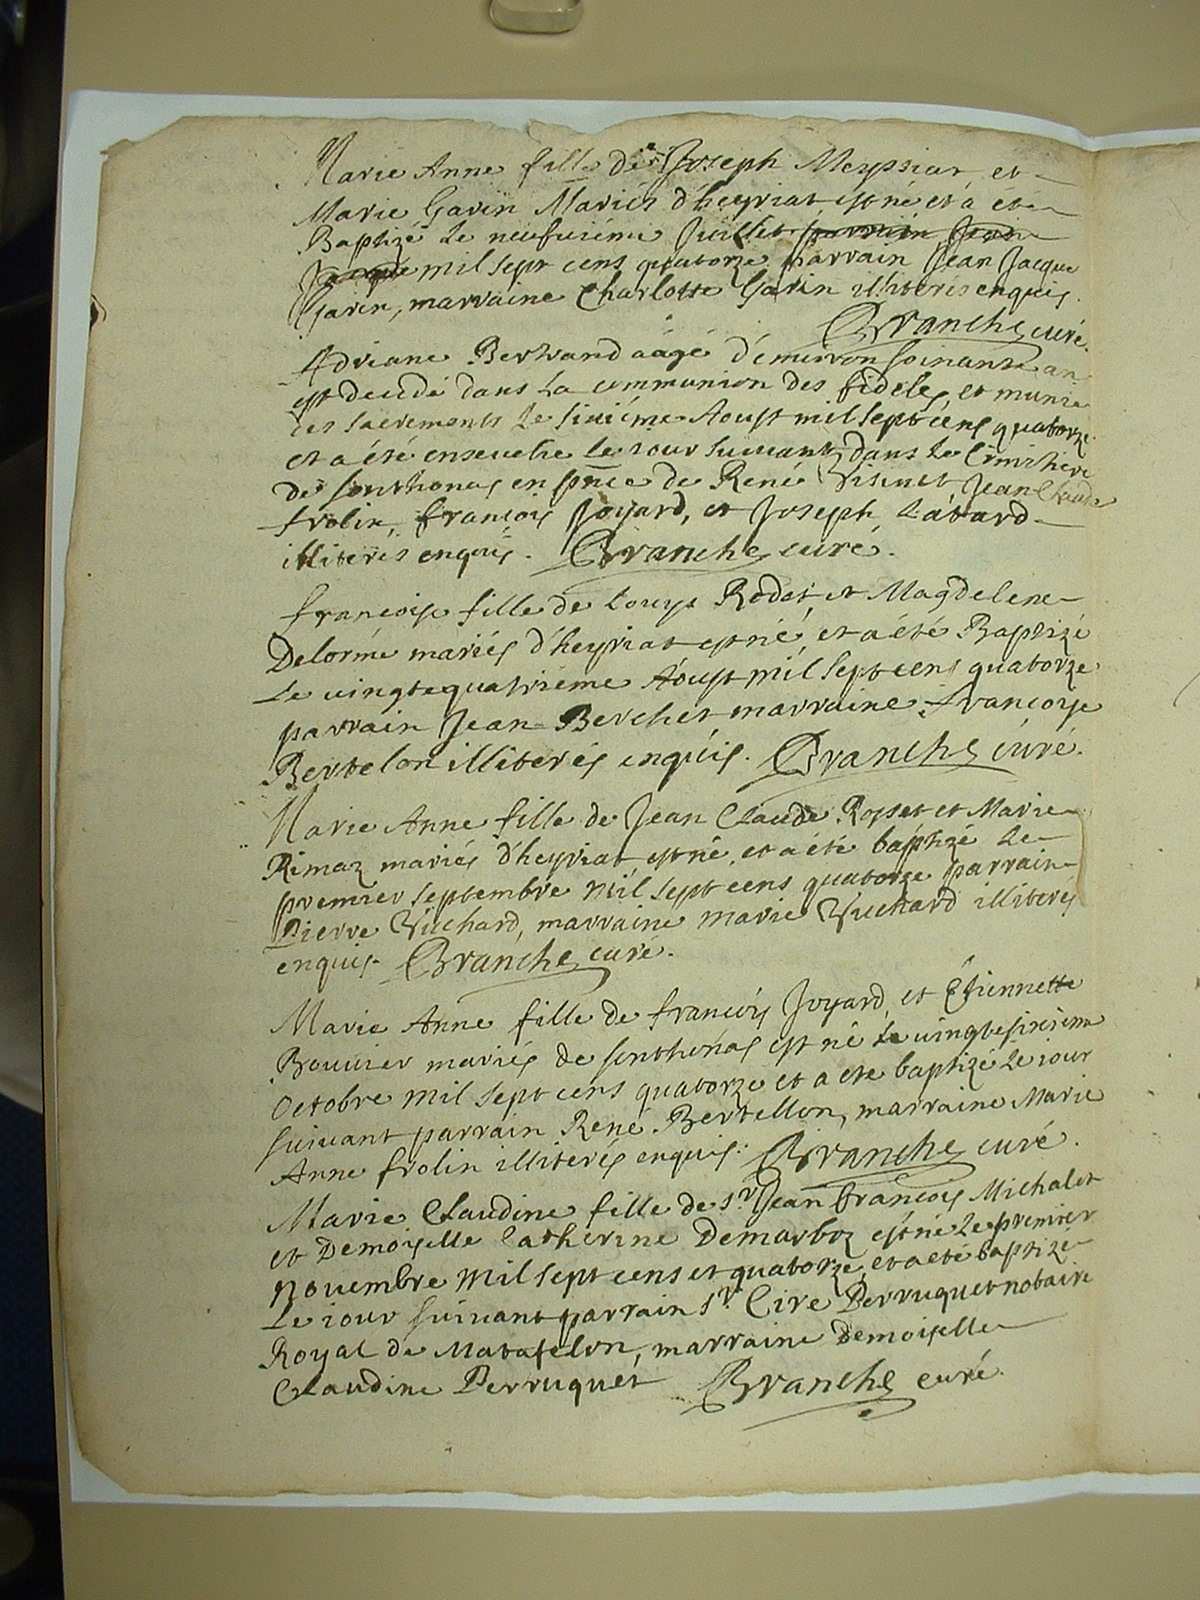 Marie Anne fille de Joseph Meyssiat et
Marie Gavin Mariés d'heyriat est né et à été
Baptizé Le neufuiéme Juillet parrain Jean
Jacque mil sept cens quatorze parrain Jean Jacque
Gavin, marraine Charlotte Gavin illiterés enquis.
Branche curé.
Adriane Bertrand aâgé d'enuiron soixante an
est decedé dans La communion des fideles, et munie
des sacrements Le sixiéme Aoust mil sept cens quatorze
et a été enseuelie Le iour suiuant dans Le Cimetiere
de sonthonas en pnce de René Jean Claude
frolin, francois Joyard, et Joseph Labard
illiterés enquis. Branche curé.
francoise fille de Louys Rodet, et Magdelene
Delorme mariés d'heyriat est né, et a été Baptizé
Le vingtequatriéme Aoust mil sept cens quatorze
parrain Jean Berchet marraine francoise
Bertelon illiterés enquis. Branche curé.
Marie Anne fille de Jean Claude Rosset et Marie
Rimaz mariés d'heyriat est né, et a été baptizé Le
premier septembre mil sept cens quatorze parrain
Pierre Vuchard, marraine marie Vuchard illiterés
enquis. Branche curé.
Marie Anne fille de francois Joyard, et Etiennette
Bouuier mariés de sonthonas est né Le vingtesixiem
Octobre mil sept cens quatorze et a ete baptizé Le iour
suiuant parrain René Bertellon, marraine Marie
Anne frolin illiterés enquis. Branche curé.
Marie Claudine fille de sr. Jean francois Michalet
et Demoiselle Catherine Demarboz est né Le premier
Nouembre mil sept cens et quatorze, et a eté baptizé
Le iour suiuant parrain sr. Cire Perruquet notaire
Royal de Matafelon, marraine Demoiselle
Claudine Perruquet Branche curé.